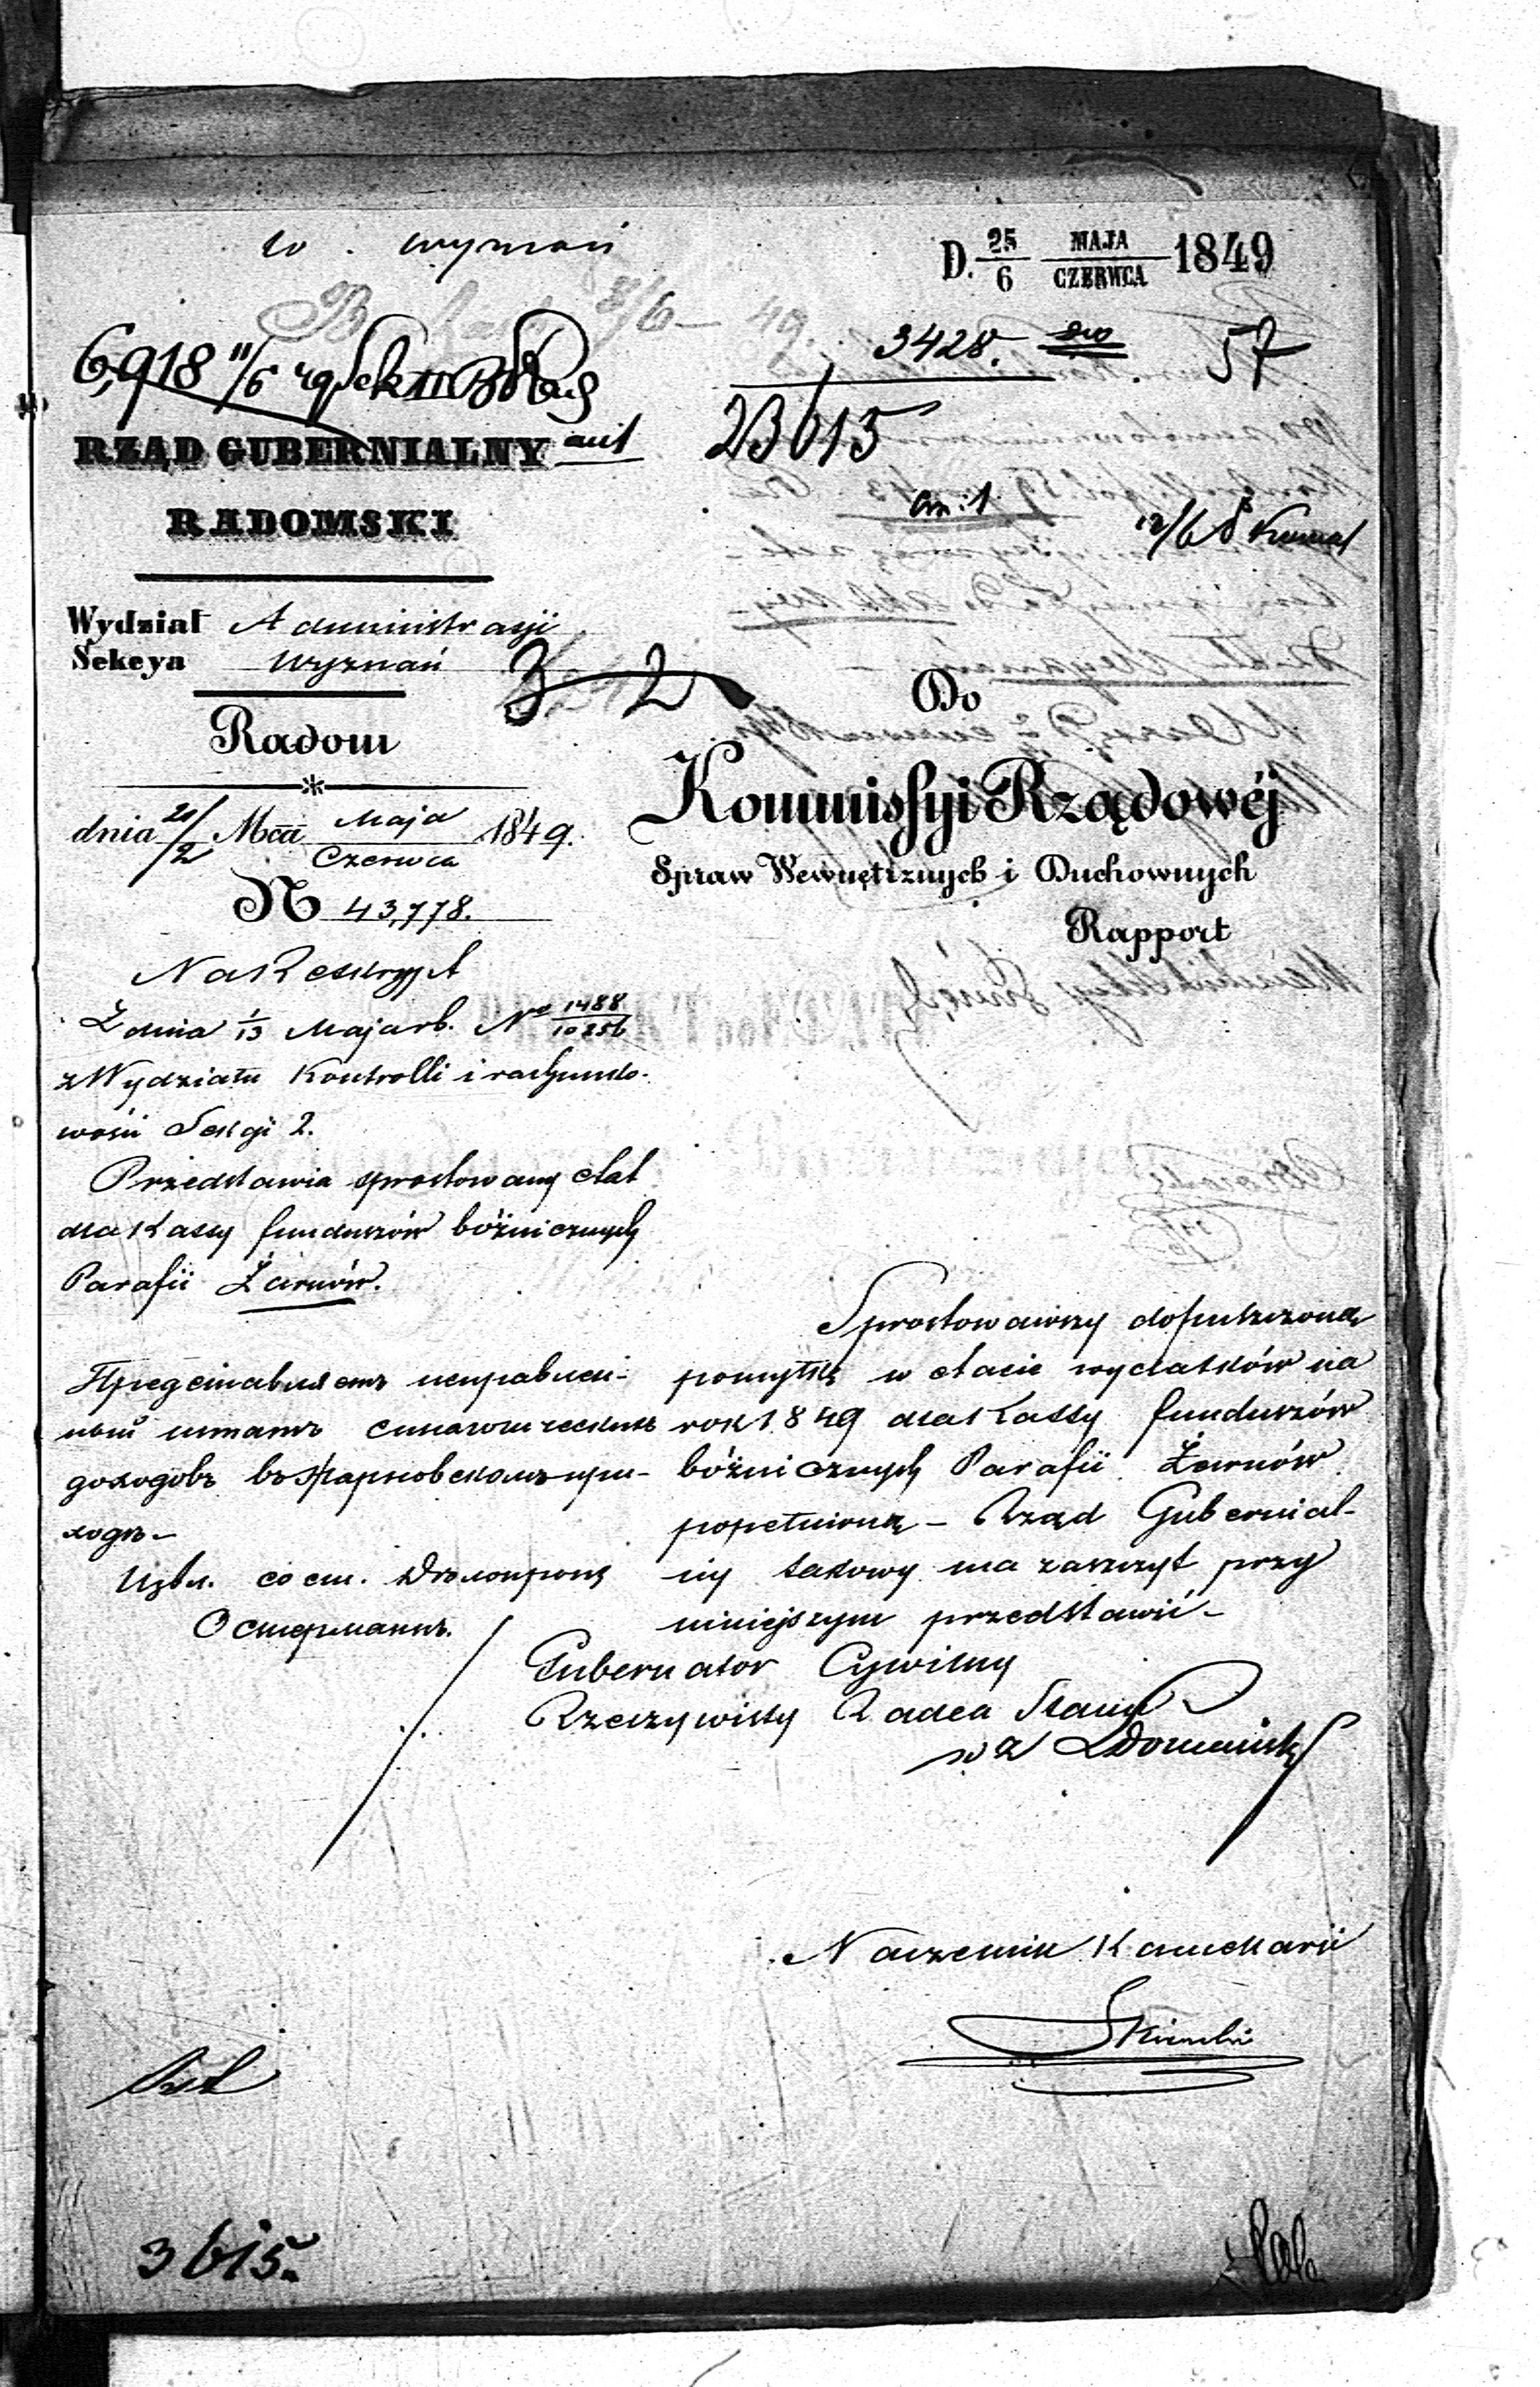 D. 25/6 MAJA/CZERWCA 1849
57
3428.
6,918 11/6 49 Sek III
23615
RZĄD GUBERNIALNY
RADOMSKI
an: 1.
12/6
Wydział Administracji
Sekcya Wyznań
Radom
dnia 21/2 Mca Maja/Czerwca 1849.
N 43,778.
Do
Kommissyi Rządowéj
Spraw Wewnętrznych i Duchownych
Rapport
Na Reskrypt
Z dnia 1/13 Maja r.b. No 1488/10256
z Wydziału Kontrolli i rachunko-
wości Sekcji 2.
Przedstawia sprostowany etat
dla Kassy funduszów bóżnicznych
Parafii Żarnów.
Представляетъ исправлен-
ный штатъ синагогическихъ
доходовъ въ Жарновскомъ при-
ходѣ-
Остерманъ.
Sprostowawszy dopuszczoną
pomyłkę w etacie wydatków na
rok 1849 dla Kassy funduszów
bóżnicznych Parafii Żarnów
popełnioną - Rząd Gubernial-
ny takowy ma zaszczyt przy
niniejszym przedstawić-
Gubernator Cywilny
Rzeczywisty Radca Stanu
Naczelnik Kancellarii
3615.